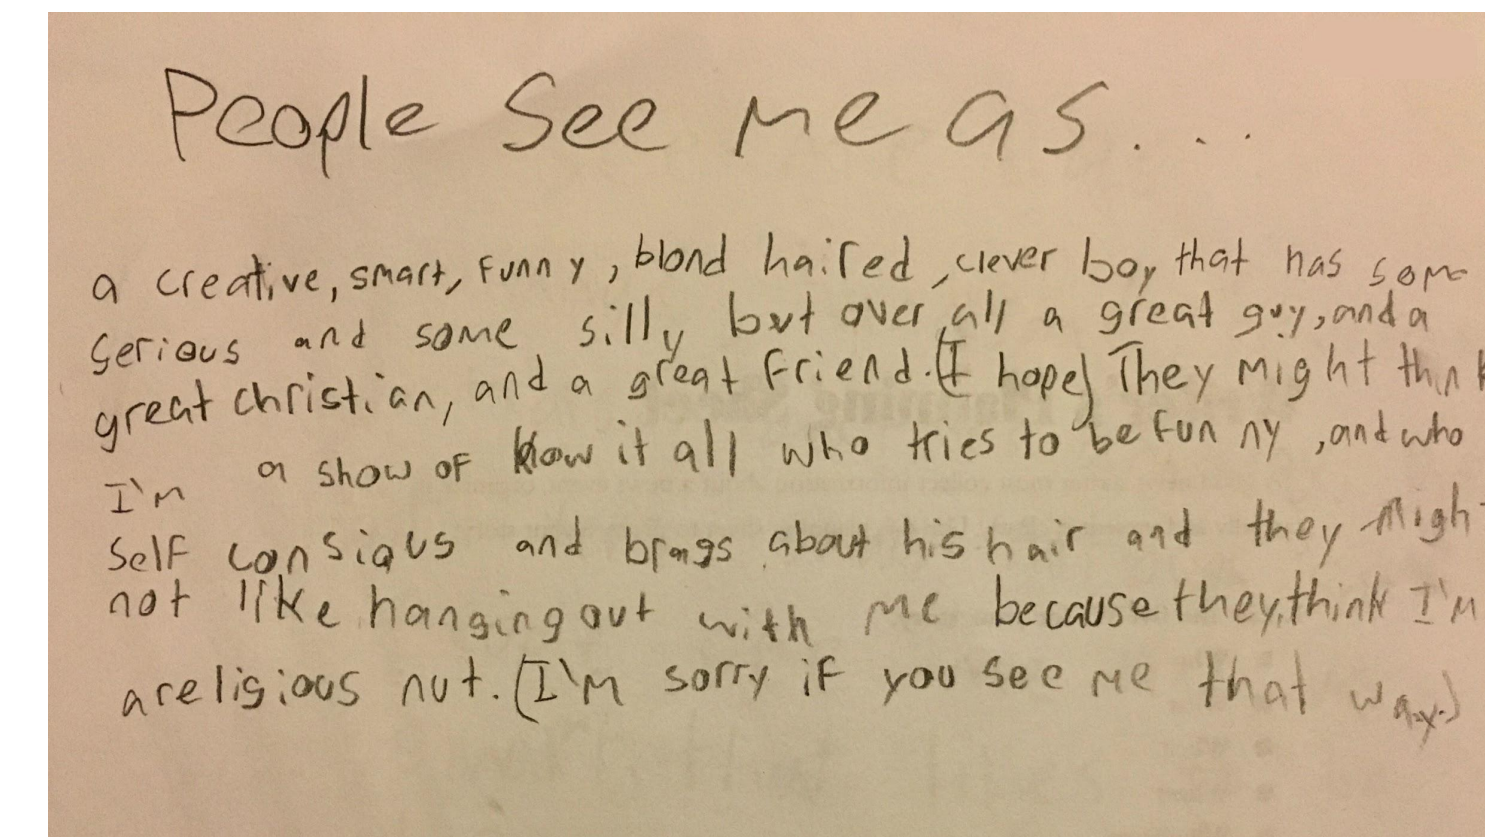 People See me as...
a creative, smart, funny, blond haired, clever boy that has some
serious and some silly but over all a great guy, and a
great christian, and a great friend. (I hope) They might think
I'm a show of know it all who tries to be funny, and who
self consious and brags about his hair and they migh
not like hanging out with me because they think I'm
a religious nut. (I'm sorry if you see me that way.)